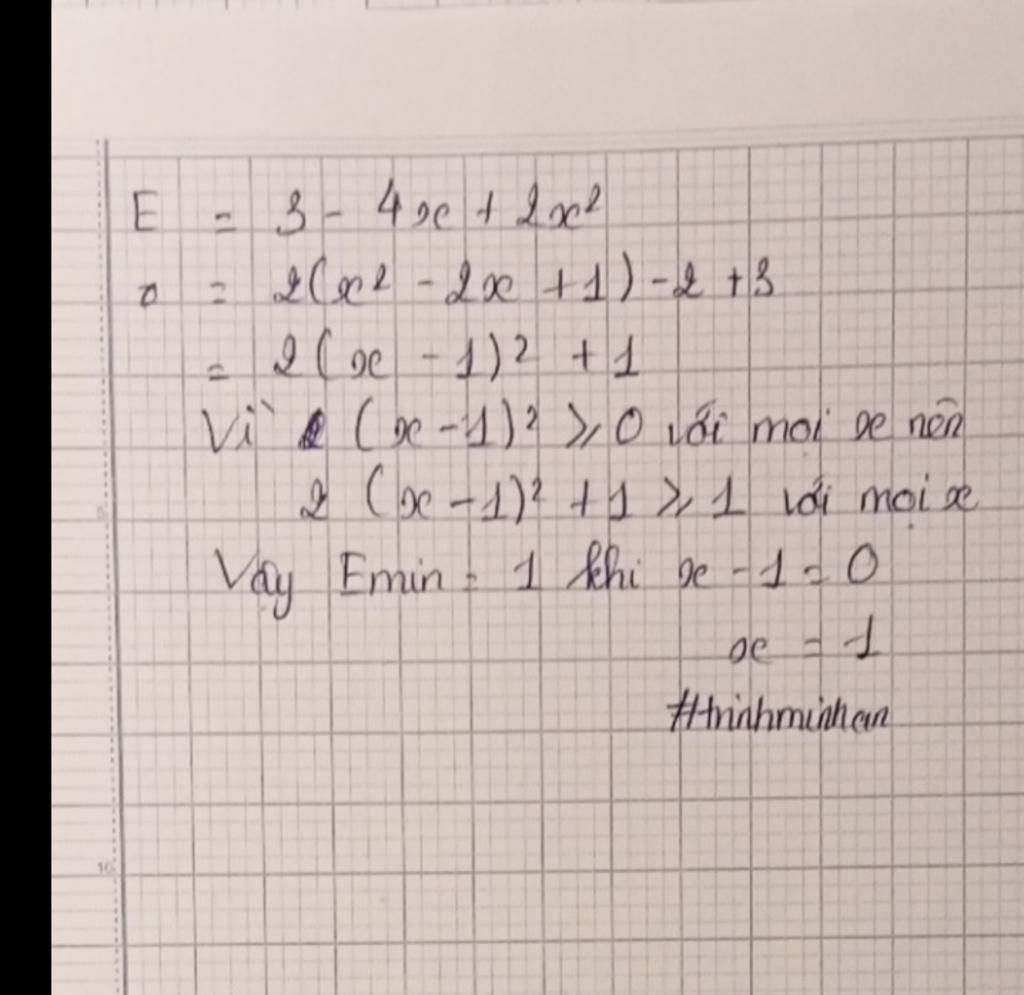 E = 3 - 4x + 2x²
= 2(x² - 2x + 1) - 2 + 3
= 2(x - 1)² + 1
Vì (x - 1)² ⩾ 0 với mọi x nên
2 (x - 1)² + 1 ⩾ 1 với mọi x
Vậy Emin = 1 khi x - 1 = 0
x = 1
#trinhminhan
10